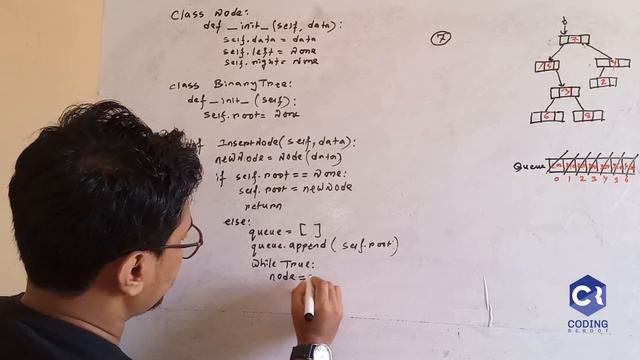 Class Node:
def __init__(self, data):
self.data = data
self.left = None
self.right = None
class BinaryTree:
def __init__(self):
self.root = None
InsertNode(self, data):
newNode = Node(data)
if self.root == None:
self.root = newNode
return
else:
queue = [ ]
queue.append(self.root)
while True:
node =
7
3
2
6
Queue
0 1 2 3 4 5 6
CODING
REBOOT